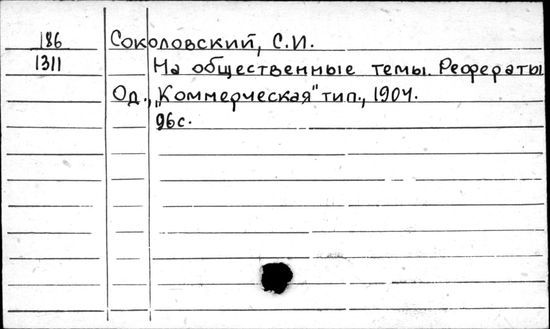 186
1311
Соколовский, С.И.
На общественные темы. Рефераты
Од., „Коммерческая" тип., 1904.
96с.